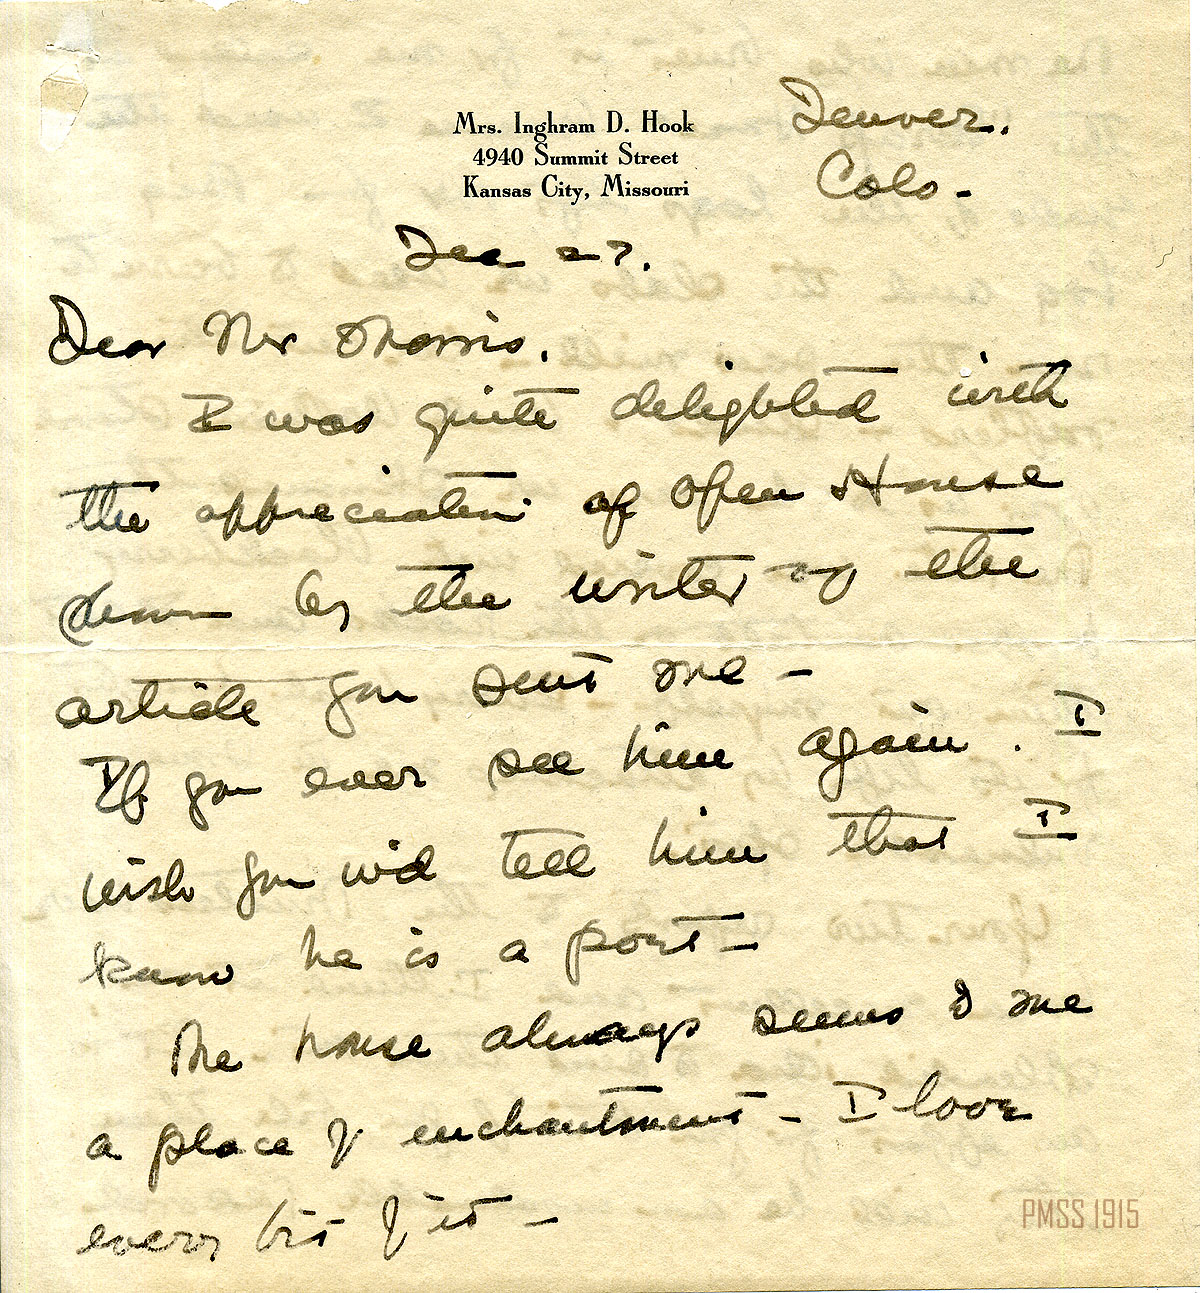 Mrs. Inghram D. Hook
4940 Summit Street
Kansas City, Missouri
Denver.
Colo -
Dec 27.
Dear Mr Morris.
I was quite delighted with
the appreciation of Open House
shown by the writer of the
article you sent me -
If you ever see him again. I
wish you wd tell him that I
know he is a poet -
The house always seems to me
a place of enchantment - I love
every bit of it -
PMSS 1915